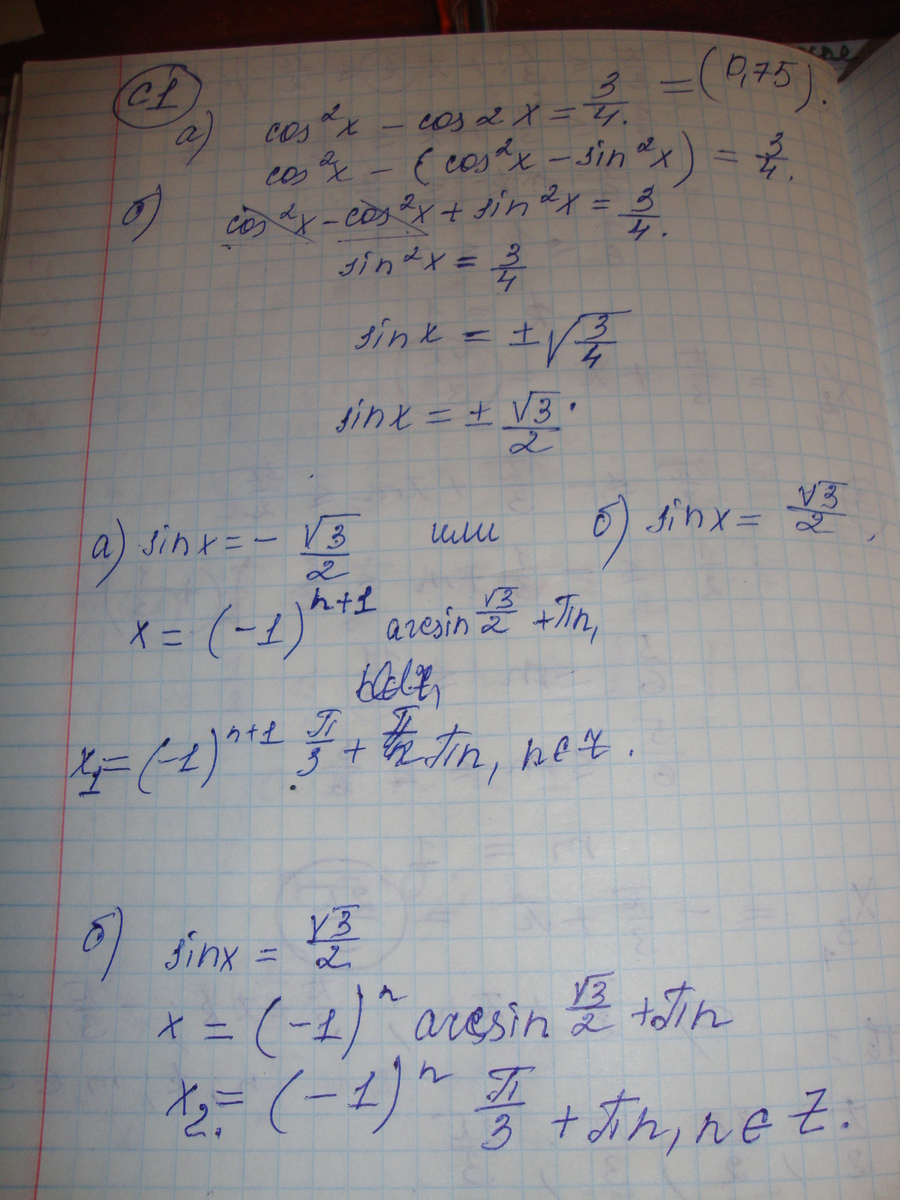 C1
а) cos²x − cos2x = 3/4. = (0,75).
cos²x − (cos²x − sin²x) = 3/4.
б) cos²x − cos²x + sin²x = 3/4.
sin²x = 3/4
sinx = ±√(3/4)
sinx = ± √3/2.
а) sinx = − √3/2 или б) sinx = √3/2,
x = (−1)ⁿ⁺¹ arcsin √3/2 + πn,
x₁ = (−1)ⁿ⁺¹ π/3 + πn, n ∈ Z.
б) sinx = √3/2
x = (−1)ⁿ arcsin √3/2 + πn
x₂. = (−1)ⁿ π/3 + πn, n ∈ Z.